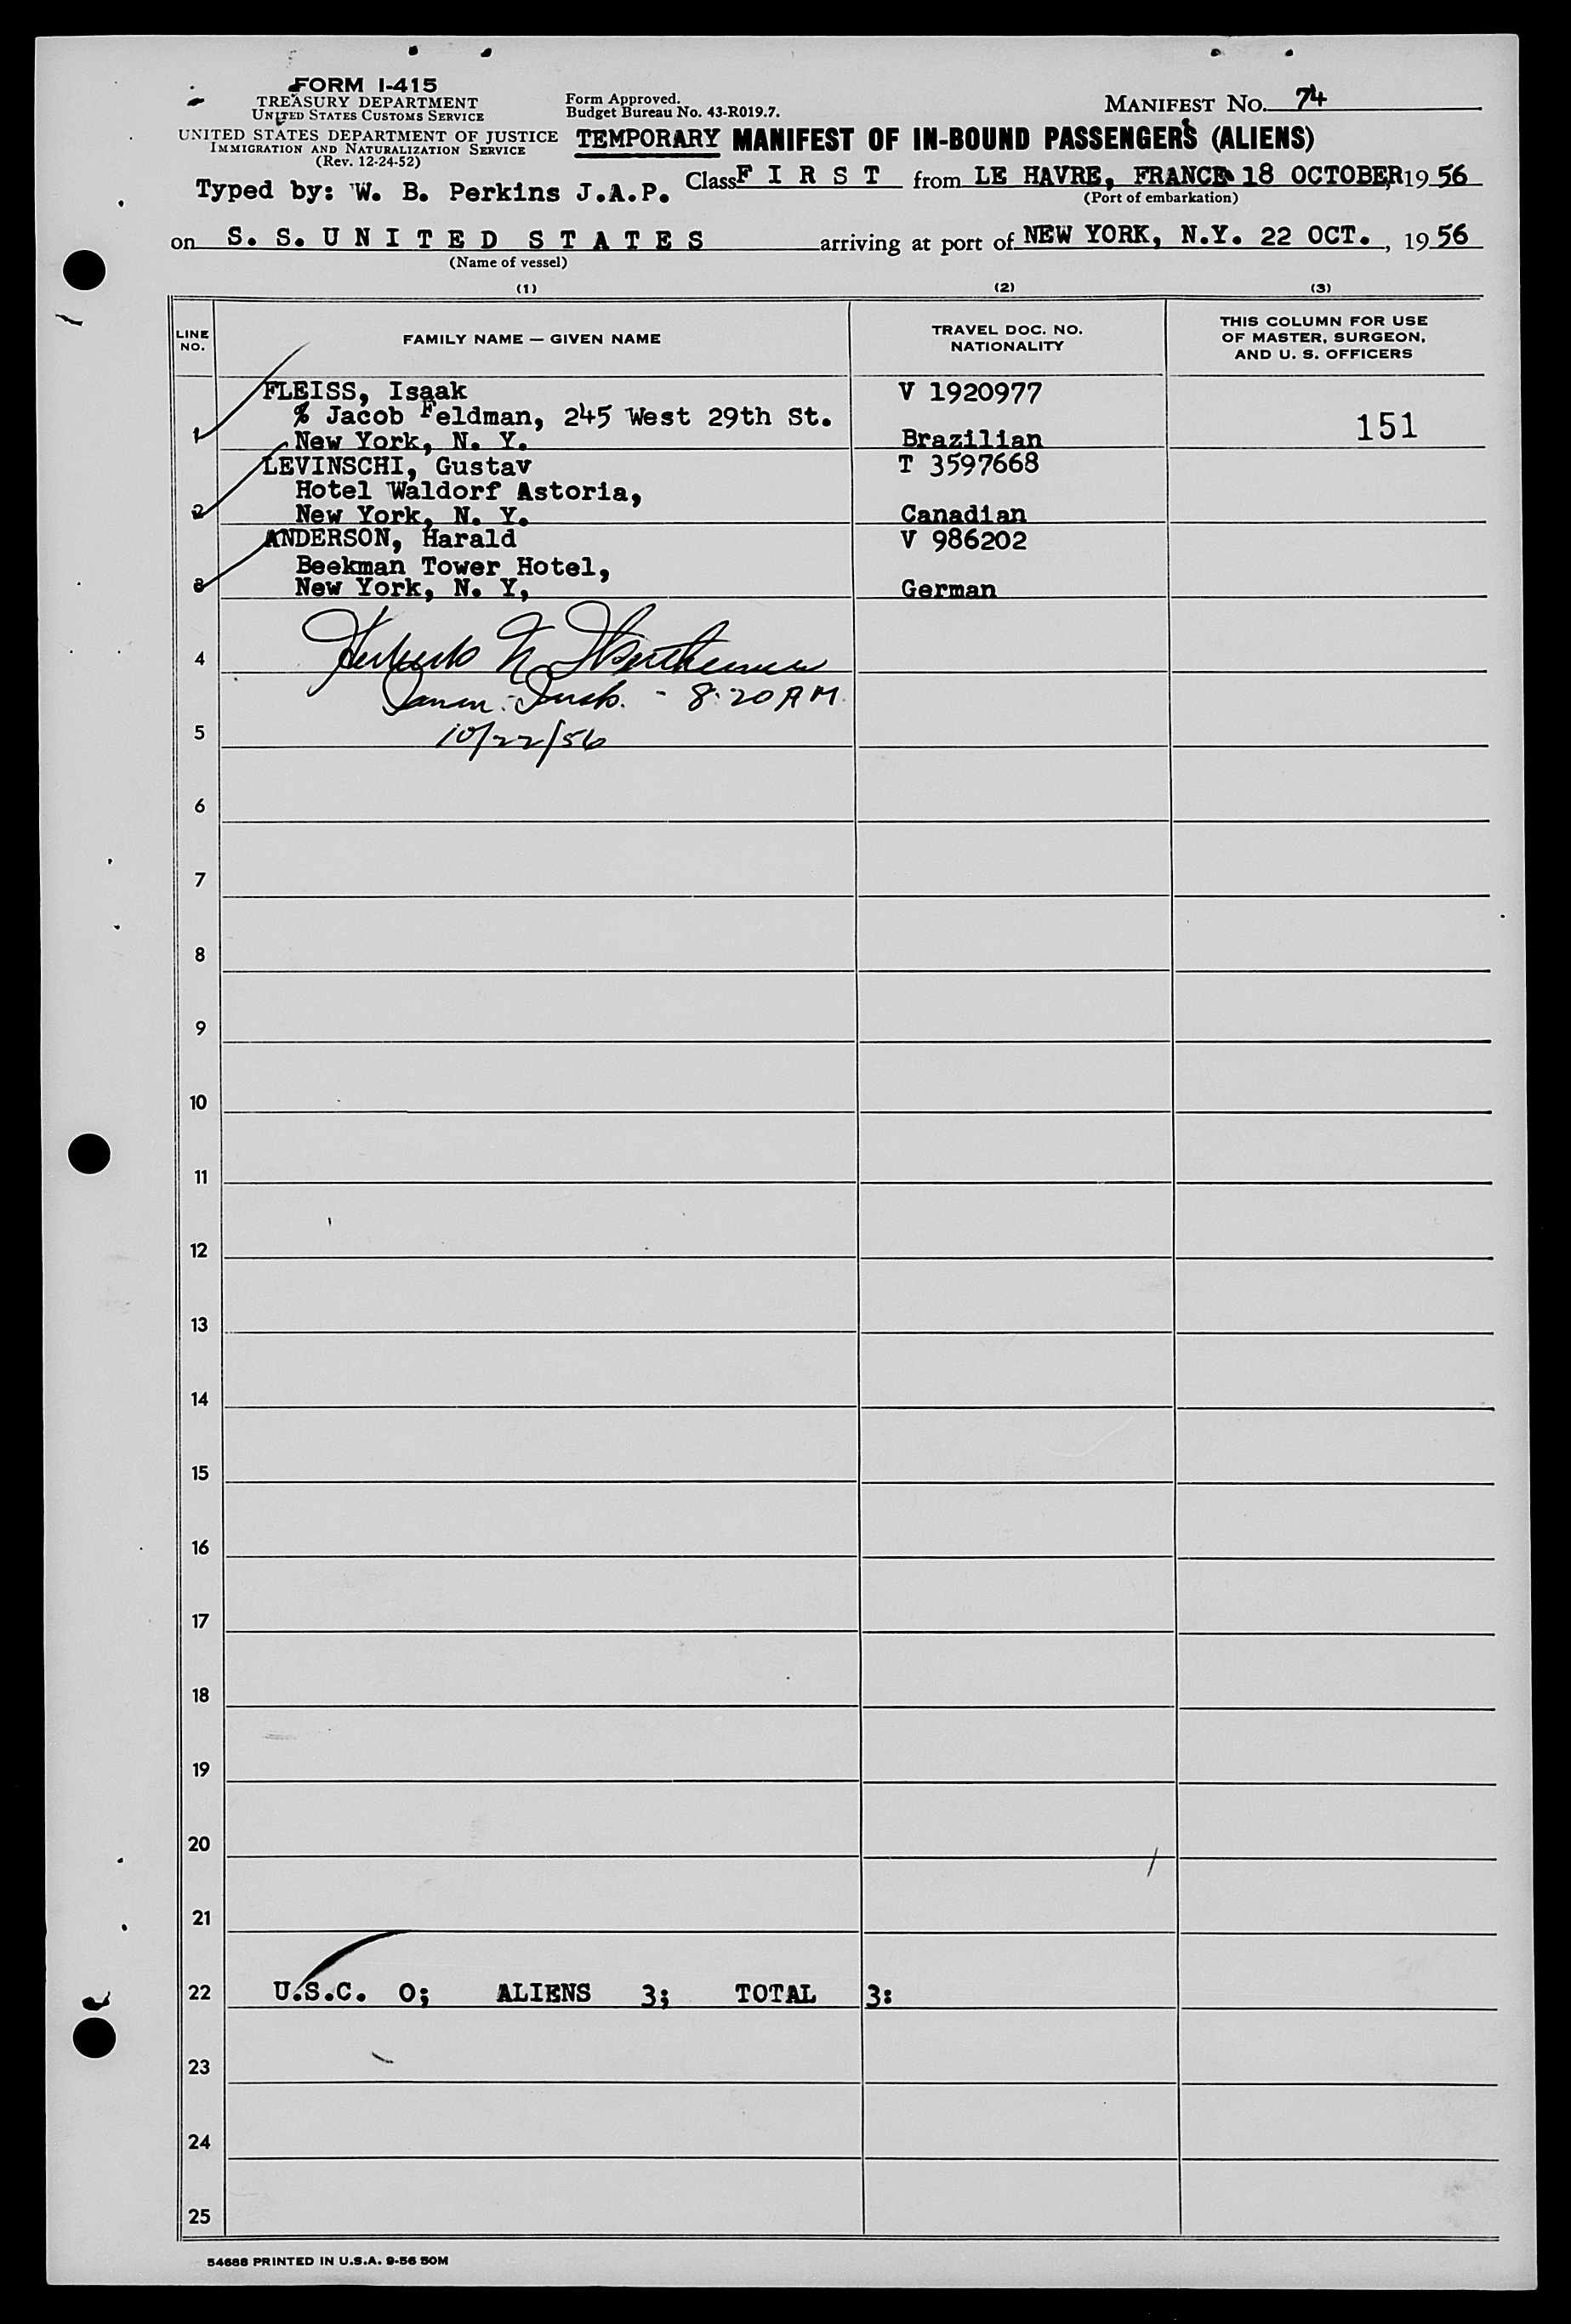 FORM I-415
TREASURY DEPARTMENT
UNITED STATES CUSTOMS SERVICE
UNITED STATES DEPARTMENT OF JUSTICE
IMMIGRATION AND NATURALIZATION SERVICE
(Rev. 12-24-52)
Form Approved.
Budget Bureau No. 43-R019.7.
MANIFEST NO. 74
TEMPORARY MANIFEST OF IN-BOUND PASSENGERS (ALIENS)
Typed by: W. B. Perkins J.A.P. Class F I R S T from LE HAVRE, FRANCE 18 OCTOBER, 19 56
(Port of embarkation)
on S. S. U N I T E D S T A T E S arriving at port of NEW YORK, N.Y. 22 OCT. , 19 56
(Name of vessel)
(1) (2) (3)
LINE NO.
FAMILY NAME — GIVEN NAME
TRAVEL DOC. NO.
NATIONALITY
THIS COLUMN FOR USE
OF MASTER, SURGEON,
AND U. S. OFFICERS
FLEISS, Isaak V 1920977
% Jacob Feldman, 245 West 29th St.
1 New York, N. Y. Brazilian 151
LEVINSCHI, Gustav T 3597668
Hotel Waldorf Astoria,
2 New York, N. Y. Canadian
ANDERSON, Harald V 986202
Beekman Tower Hotel,
3 New York, N. Y, German
4
- 8:20 AM.
5 10/22/56
6
7
8
9
10
11
12
13
14
15
16
17
18
19
20
21
22 U.S.C. 0; ALIENS 3; TOTAL 3:
23
24
25
54688 PRINTED IN U.S.A. 9-56 50M